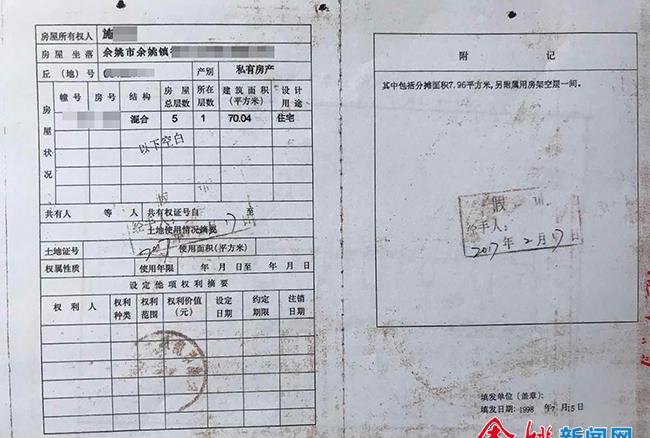 房屋所有权人 施
房屋坐落 余姚市余姚镇
丘(地)号 产别 私有房产
房屋状况
幢号 房号 结构 房屋总层数 所在层数 建筑面积(平方米) 设计用途
混合 5 1 70.04 住宅
以下空白
共有人 等 人 共有权证号自 至
土地使用情况摘要
土地证号 使用面积(平方米)
权属性质 使用年限 年 月 日至 年 月 日
设定他项权利摘要
权利人 权利种类 权利范围 权利价值(元) 设定日期 约定期限 注销日期
附 记
其中包括分摊面积7.96平方米,另附属用房架空层一间。
假
经手人:
2017年2月17日
填发单位(盖章):
填发日期:1998年7月15日
余姚新闻网